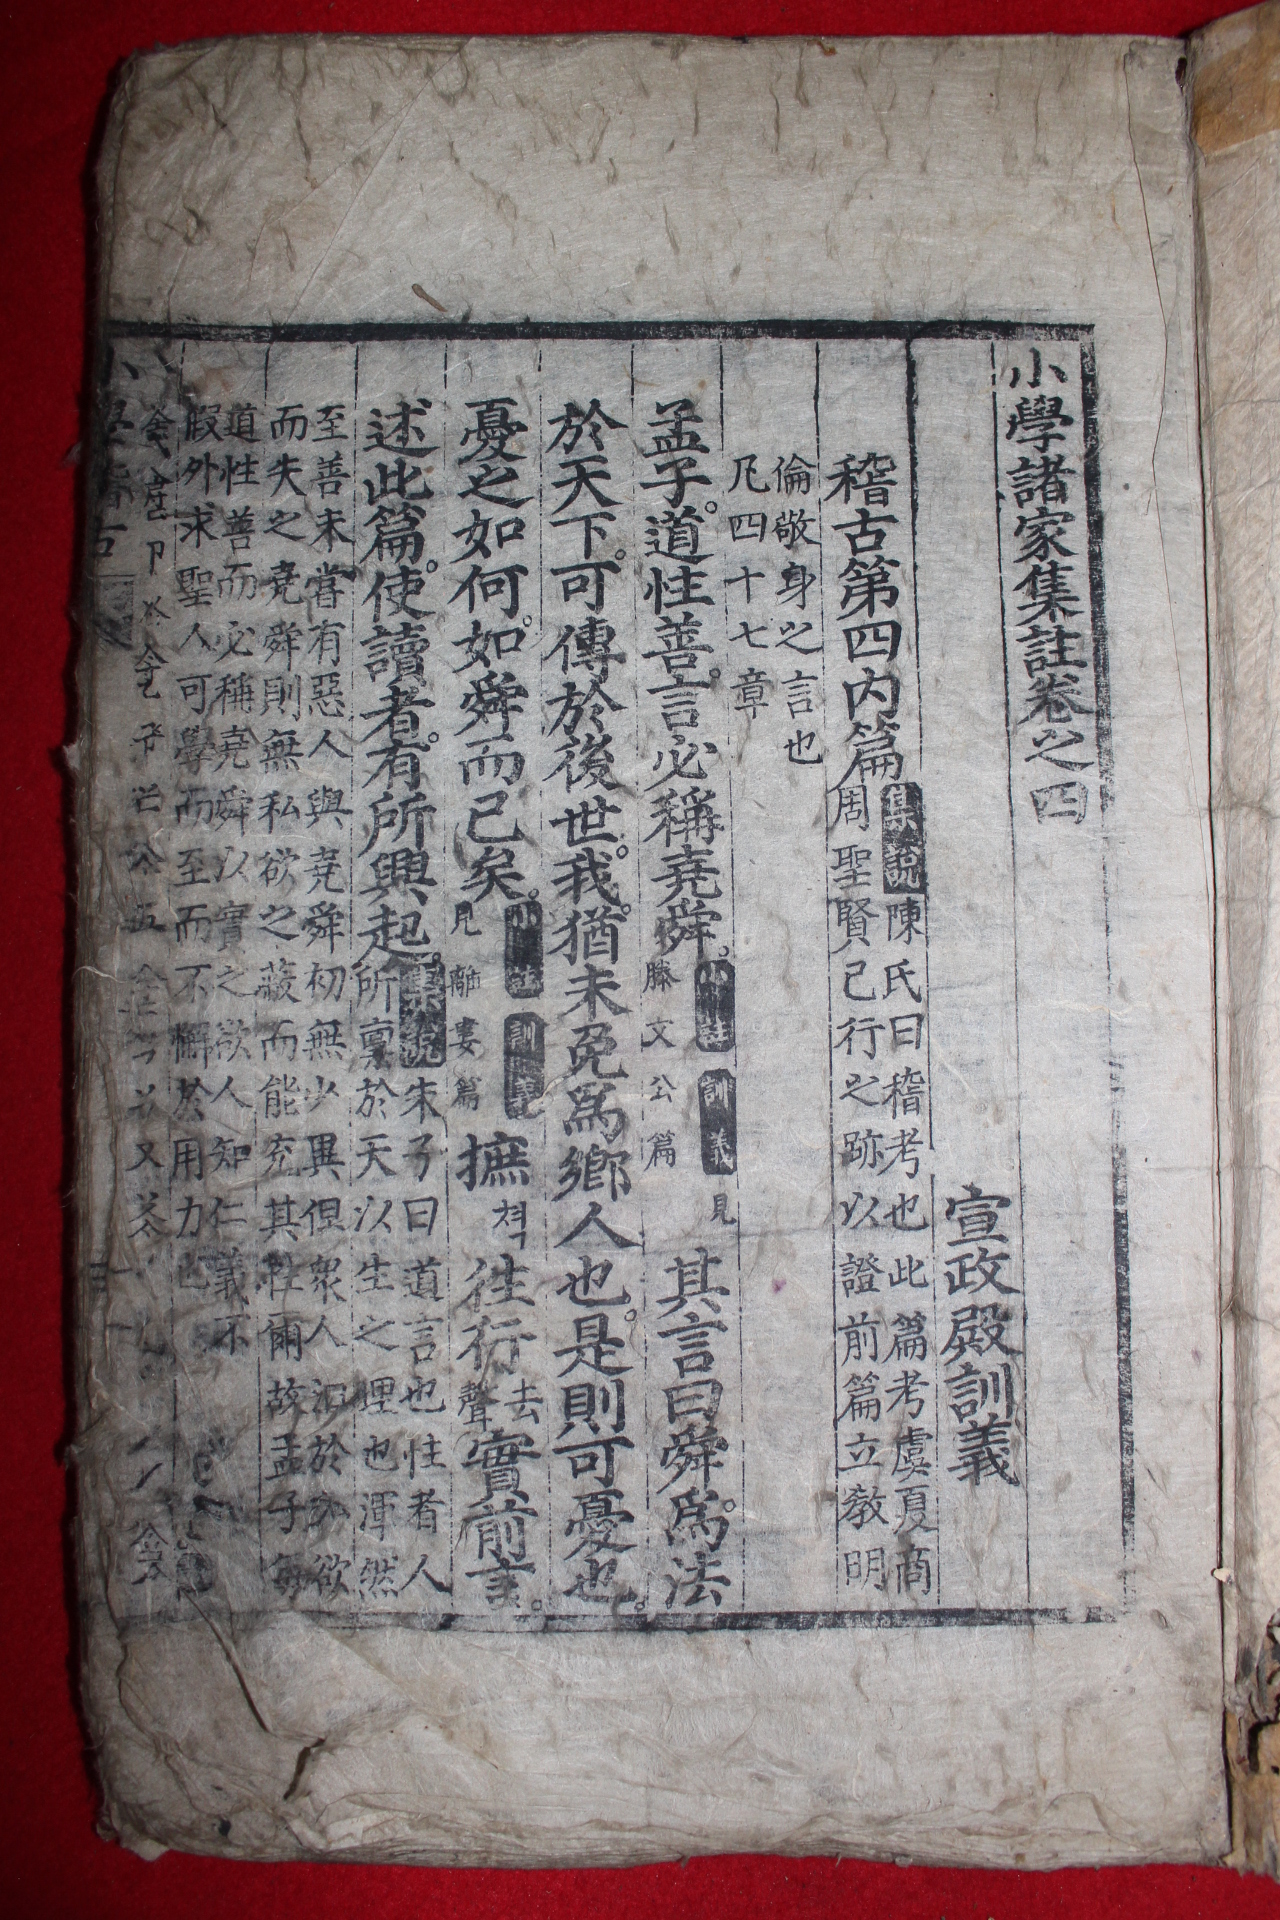 小學諸家集註卷之四
宣政殿訓義
稽古第四內篇
集說陳氏曰稽考也此篇考虞夏商
周聖賢已行之跡以證前篇立敎明
倫敬身之言也
凡四十七章
孟子。道性善。言必稱堯舜。小註訓義見滕文公篇其言曰舜。爲法
於天下。可傳於後世。我。猶未免爲鄕人也。是則可憂也。
憂之如何。如舜而已矣。小註訓義見離婁篇摭쳑往行去聲實前言。
述此篇。使讀者。有所興起。
集說朱子曰道言也性者人
所稟於天以生之理也渾然
至善未嘗有惡人與堯舜初無少異但衆人汩於私欲
而失之堯舜則無私欲之蔽而能充其性爾故孟子每
道性善而必稱堯舜以實之欲人知仁義不
假外求聖人可學而至而不懈於用力也